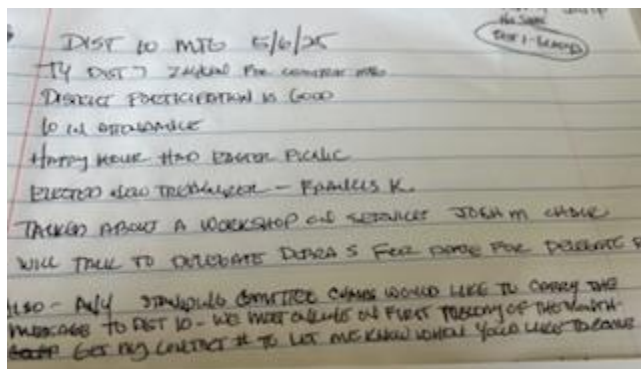 the same
Dist 1 -
DIST 10 MTG 5/6/25
TY DIST 7 for
DISTRICT PARTICIPATION IS GOOD
10 IN ATTENDANCE
HAPPY HOUR HAD EASTER PICNIC
ELECTED NEW TREASURER - FRANCIS K.
TALKED ABOUT A WORKSHOP ON SERVICES JOSH M CHAIR
WILL TALK TO DELEGATE DEBRA S FOR DATE FOR DELEGATE
ALSO - ANY STANDING COMMITTEE CHAIRS WOULD LIKE TO CARRY THE
MESSAGE TO DIST 10 - WE MEET ONLINE ON FIRST TUESDAY OF THE MONTH -
GET MY CONTACT # TO LET ME KNOW WHEN YOU'D LIKE TO COME